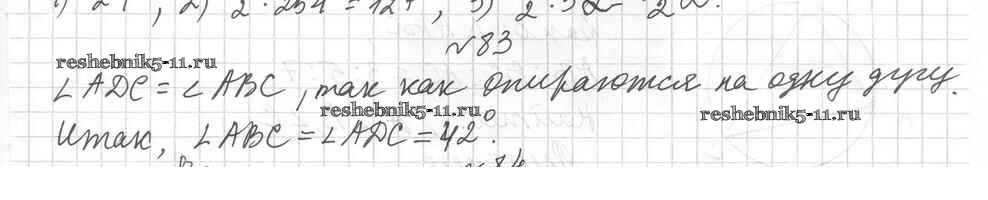 2) 2 · 254 = 127
№83
reshebnik5-11.ru
∠ADC = ∠ABC, так как опираются на одну дугу.
reshebnik5-11.ru
reshebnik5-11.ru
Итак, ∠ABC = ∠ADC = 42°.
№84